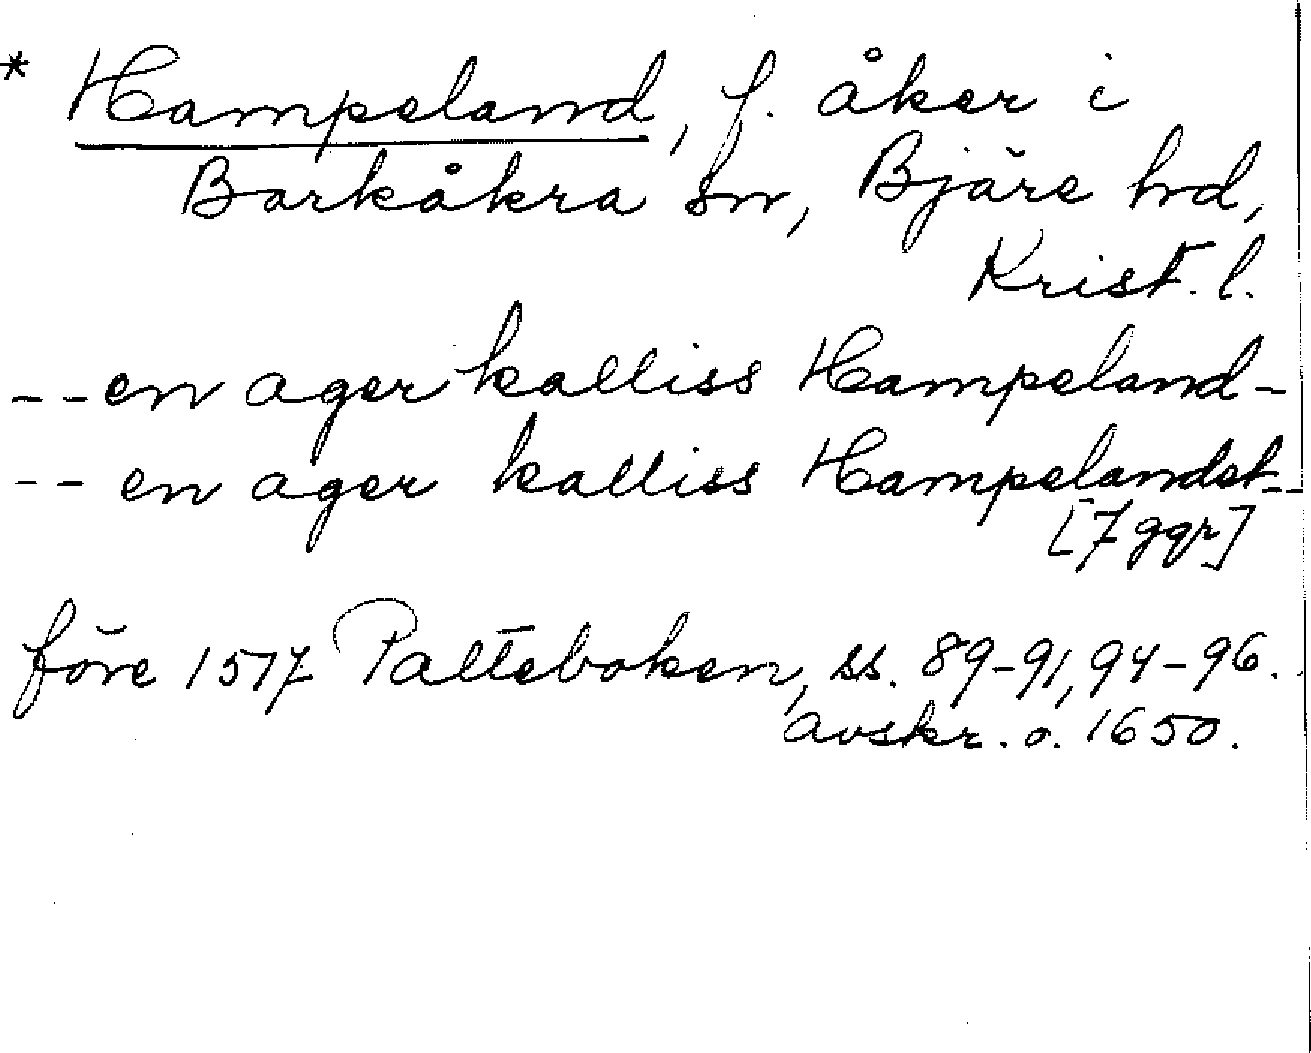 * Hampeland, f. åker i
Barkåkra sn, Bjäre hd,
Krist. l.
-- en ager kalliss Hampeland-
-- en ager kalliss Hampelandet--
[7 ggr]
före 1517 Palteboken, ss. 89-91, 94-96.
avskr. o. 1650.